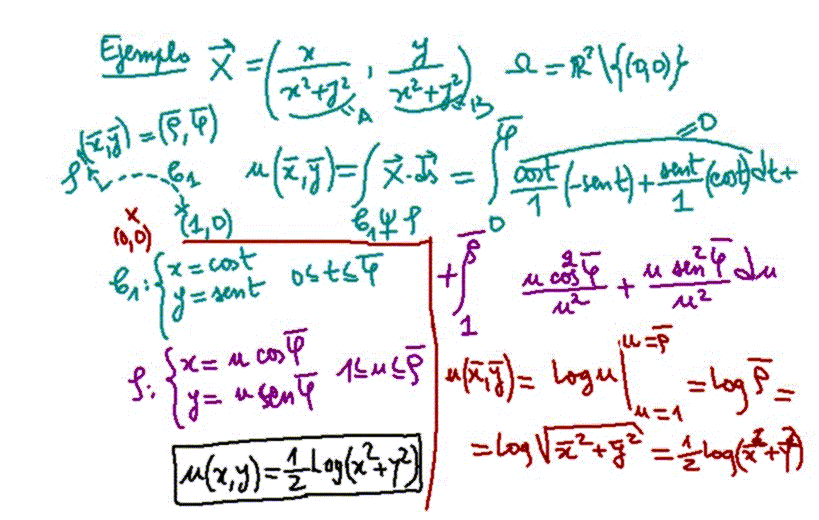 Ejemplo X⃗ = (x/(x²+y²), y/(x²+y²)) Ω = ℝ²\{(0,0)}
A B
(x̄,ȳ) = (ρ̄,φ̄)
ρ C₁
(0,0) (1,0)
u(x̄,ȳ) = ∫_{C₁ Ψ ρ} X⃗·ds⃗ = ∫₀^φ̄ cost/1 (-sent) + sent/1 (cost) dt +
=0
C₁: { x = cost
y = sent 0≤t≤φ̄
+ ∫₁^ρ̄ u cos²φ̄/u² + u sen²φ̄/u² du
ρ: { x = u cosφ̄
y = u senφ̄ 1≤u≤ρ̄
u(x̄,ȳ) = log u |_{u=1}^{u=ρ̄} = log ρ̄ =
= log √(x̄²+ȳ²) = 1/2 log(x̄²+ȳ²)
u(x,y) = 1/2 log(x²+y²)